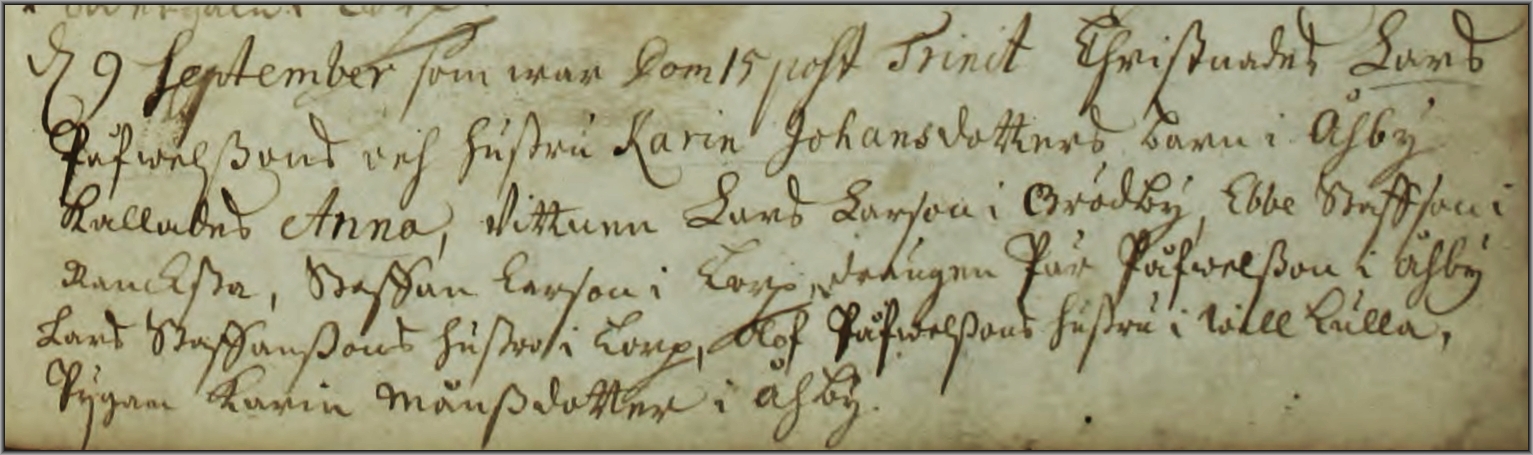 d 9 September som war Dom 15 post Trinit Christnades Lars
Påfwelßons och hustru Karin Johansdotters barn i Åhby
Kallades Anna, Vittnen Lars Larson i Grödby, Ebbe Staffson i
Ranksta, Staffan Larson i Torp, drängen Pär Påfwelßon i Åhby
Lars Staffanßons hustro i Torp, Olof Påfwelßons hustru i Lill Kulla,
Pÿgan Karin Månßdotter i Åhbÿ.